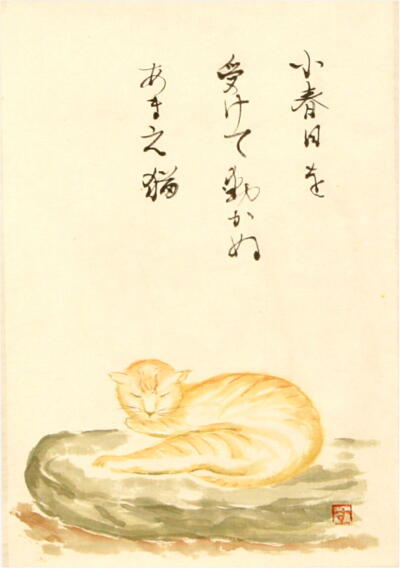 小春日を
受けて動かぬ
あまえ猫